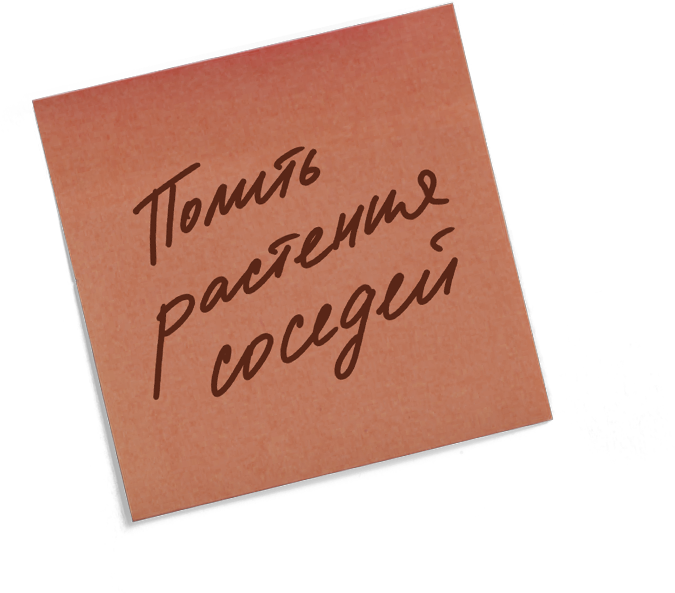 Полить
растения
соседей